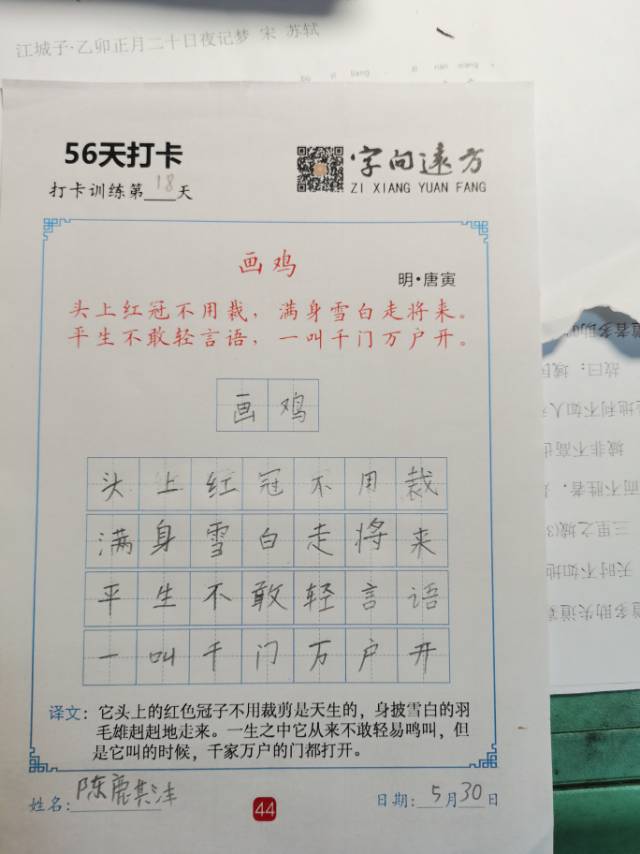 江城子·乙卯正月二十日夜记梦 宋 苏轼
56天打卡
打卡训练第18天
字向远方
ZI XIANG YUAN FANG
画鸡
明·唐寅
头上红冠不用裁，满身雪白走将来。
平生不敢轻言语，一叫千门万户开。
画鸡
头上红冠不用裁
满身雪白走将来
平生不敢轻言语
一叫千门万户开
译文：它头上的红色冠子不用裁剪是天生的，身披雪白的羽
毛雄赳赳地走来。一生之中它从来不敢轻易鸣叫，但
是它叫的时候，千家万户的门都打开。
姓名：陈
44
日期：5月30日
故曰：域
地利不如人
城非不高也
而不胜者，
三里之城
天时不如地
道多助失道寡